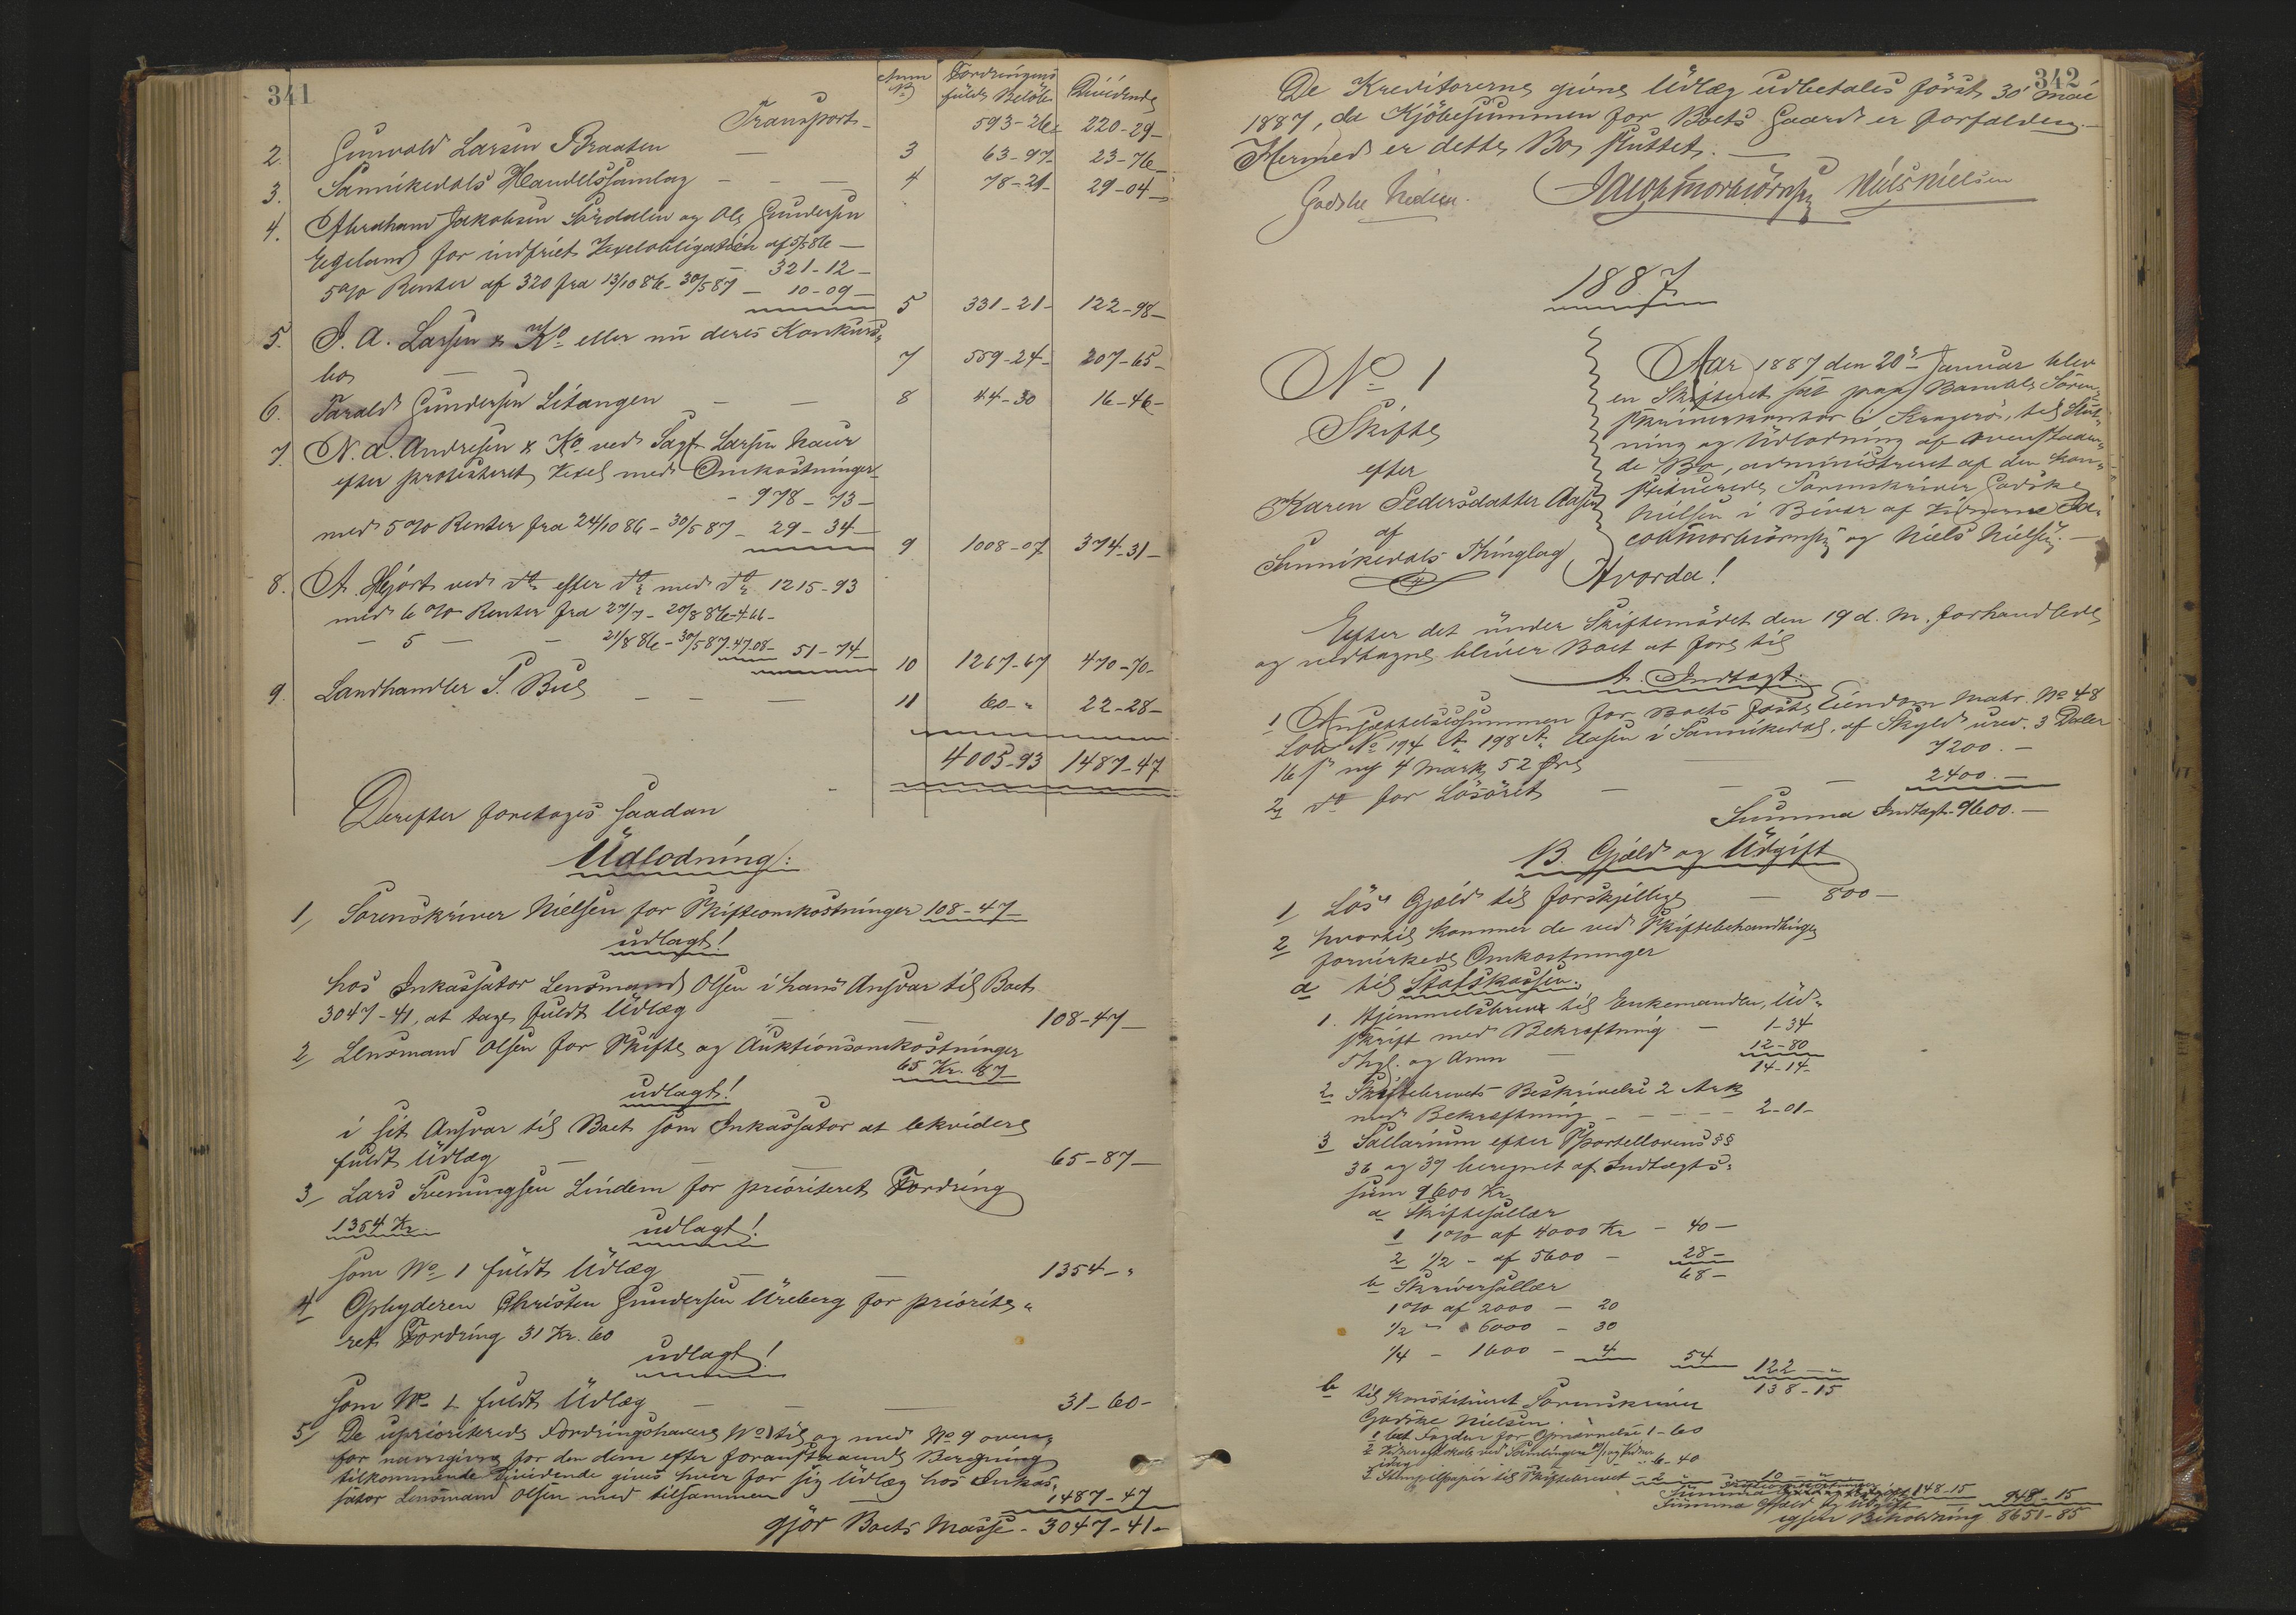 341
Anm No Fordringens fulde Beløb Dividende
Transport - 593-26 220-29-
2. Gunvald Larsen Braaten — 3 63-97- 23-76-
3. Sannikedals Handelssamlag - - - 4 78-21- 29-04-
4. Abraham Jakobsen Sørdalen og Ole Gundersen
Egeland for indfriet Vexelobligation af 5/5 86 —
321-12-
5% Renter af 320 fra 13/10 86 - 30/5 87 - 10-09- 5 331-21- 122-98-
5. J. A. Larsen & Ko eller nu deres Konkurs-
bo — 7 559-24- 207-65-
6. Tarald Gundersen Litangen - - 8 44-30 16-46-
7. N. A. Andresen & Ko ved Sagf. Larsen Naur
efter protesteret Vexel med Omkostninger
- 978-73-
med 5% Renter fra 24/10 86 - 30/5 87 - 29-34- 9 1008-07 374-31-
8. A. Hjort ved do efter do med do 1215-93
med 6% Renter fra 27/7 - 20/8 86 - 4-66-
- 5 - - 21/8 86 - 30/5 87 - 47-08- 51-74- 10 1267-67 470-70-
9. Landhandler P. Bue - - - 11 60-" 22-28-
4005-93 1487-47
Derefter foretages saadan
Udlodning:
1, Sorenskriver Nielsen for Skifteomkostninger 108-47-
udlagt!
hos Inkassator Lensmand Olsen i hans Ansvar til Boet
3047-41, at tage fuldt Udlæg — — 108-47-
2, Lensmand Olsen for Skifte og Auktionsomkostninger
65 Kr. 87
udlagt!
i sit Ansvar til Boet som Inkassator at lekvidere
fuldt Udlæg — — — 65-87-
3, Lars Svenungsen Lindem for prioriteret Fordring
1354 Kr. udlagt!
som No 1 fuldt Udlæg — — 1354-"
4, Opbyderen Christen Gundersen Ureberg for priorite-
ret Fordring 31 Kr. 60
udlagt!
som No 1 fuldt Udlæg — — — 31-60-
5, De uprioriterede Fordringshavere No 1 til og med No 9 oven-
for navngivne for den dem efter foranstaaende Beregning
tilkommende Dividende gives hver for sig Udlæg hos Inkas-
sator Lensmand Olsen med tilsammen — 1487-47
gjør Boets Masse - 3047-41-
342
De Kreditorerne givne Udlæg udbetales først 30' Mai
1887, da Kjøbesummen for Boets Gaard er forfalden.-
Hermed er dette Bo sluttet. —
Godske Nielsen. Jacob Thorbiörnsen Niels Nielsen
1887
No 1
Skifte
efter
Karen Pedersdatter Aasen
af
Sannikedals Thinglag
Aar 1887 den 20de Januar blev
en Skifteret sat paa Bamble Soren-
skriverkontor i Kragerø, til Slut-
ning og Udlodning af ovenstaaen-
de Bo, administreret af den kon-
stituerede Sorenskriver Godske
Nielsen i Bivær af Vidnerne Ja-
cob Thorbiörnsen og Niels Nielsen.-
Hvorda!
Efter det under Skiftemødet den 19 d. M. forhandlede
og vedtagne bliver Boet at føre til
A. Indtægt:
1 Ansættelsessummen for Boets faste Eiendom Matr. No 48
Løbe No 194 A, 198 A, Aasen i Sannikedal, af Skyld urev. 3 Daler
16 ß ny 4 Mark 52 Øre — — 7200.-
2, do for Løsøret — — — 2400.-
Summa Indtægt 9600.-
B. Gjæld og Udgift
1, Løs Gjæld til forskjellige — 800-
2 hvortil kommer de ved Skiftebehandlingen
forvirkede Omkostninger
a til Statskassen:
1. Hjemmelsbrev til Enkemanden, Ud-
skrift med Bekræftning - 1-34
Thgl. og Anm — 12-80
14-14-
2 Skiftebrevets Beskrivelse 2 Ark
med Bekræftning - - - - 2-01-
3 Sallarium efter Sportellovens §§
36 og 37 beregnet af Indtægts-
sum 9600 Kr
a Skiftesallær
1 1% af 4000 Kr - 40-
2 1/2 - af 5600 - 28-
68-
b Skriversallær
1% af 2000 - 20
1/2 " " 6000 - 30
1/4 - 1600 - 4 54 122-"
138-15
b til konstitueret Sorenskriver
Godske Nielsen.
1 bet. Fogden for Opnævnelse 1-60
6-40
3 Stempelpapir til Skiftebrevet - 2 10-"
Summa Skifteomkostninger 148-15
Summa Gjæld og Udgift — 948-15
igjen Beholdning 8651-85